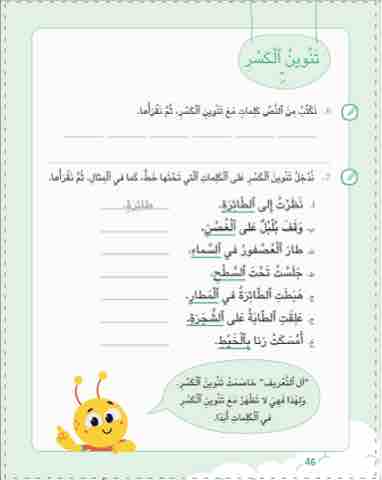 تَنْوِينُ ٱلْكَسْرِ
6. نَكْتُبُ مِنَ ٱلنَّصِّ كَلِماتٍ مَعَ تَنْوِينِ ٱلْكَسْرِ، ثُمَّ نَقْرَأُها.
7. نُدْخِلُ تَنْوِينَ ٱلْكَسْرِ عَلى ٱلْكَلِماتِ ٱلَّتي تَحْتَها خَطٌّ، كَما في ٱلْمِثالِ، ثُمَّ نَقْرَأُها.
أ. نَظَرْتُ إِلى ٱلطّائِرَةِ. طائِرَةٍ.
ب. وَقَفَ بُلْبُلٌ عَلى ٱلْغُصْنِ.
ت. طارَ ٱلْعُصْفورُ في ٱلسَّماءِ.
ث. جَلَسْتُ تَحْتَ ٱلسَّطْحِ.
ج. هَبَطَتِ ٱلطّائِرَةُ في ٱلْمَطارِ.
ح. عَلِقَتِ ٱلطّابَةُ عَلى ٱلشَّجَرَةِ.
خ. أَمْسَكَتْ رَنا بِٱلْخَيْطِ.
"ال ٱلتَّعْريف" خاصَمَتْ تَنْوينَ ٱلْكَسْرِ،
وَلِهٰذا فَهِيَ لا تَظْهَرُ مَعَ تَنْوينِ ٱلْكَسْرِ
في ٱلْكَلِماتِ أَبَدًا.
46